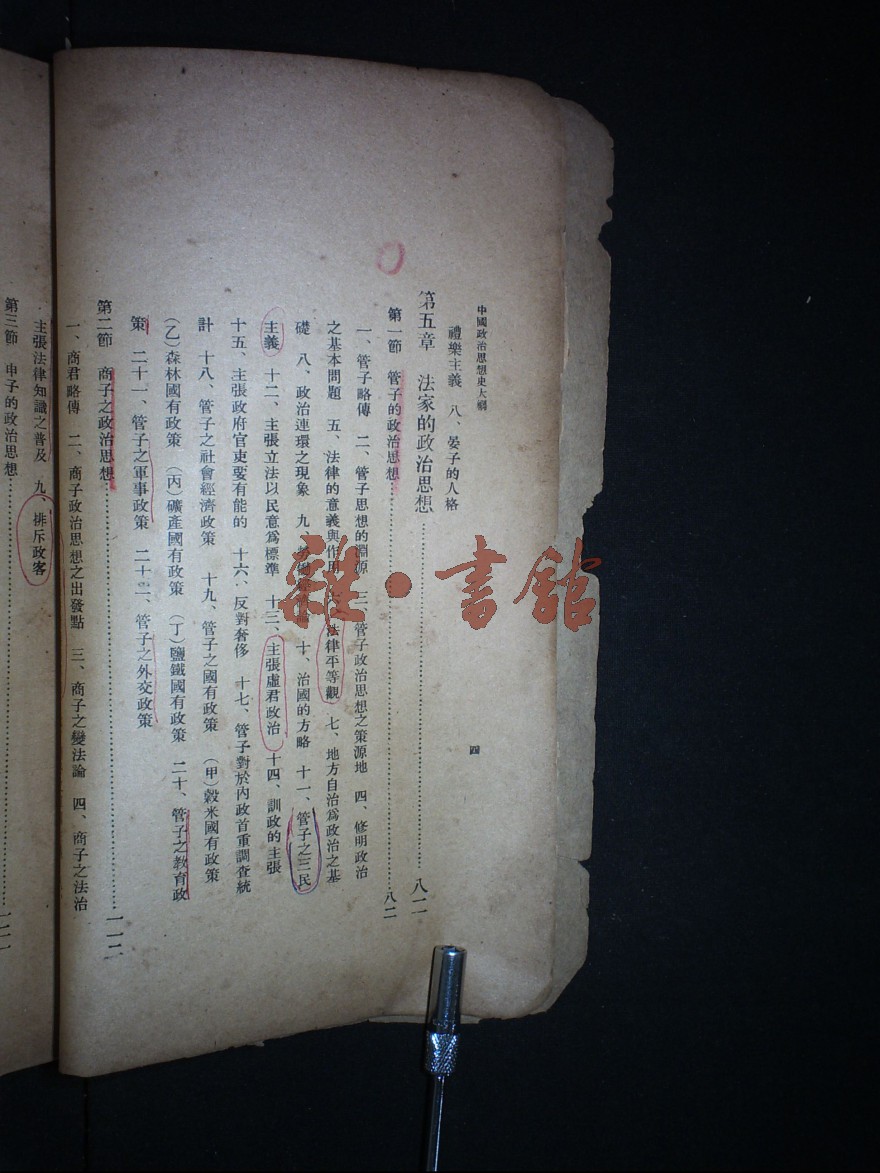 中國政治思想史大綱
四
禮樂主義　八、晏子的人格
第五章　法家的政治思想……八二
第一節　管子的政治思想……八二
一、管子略傳　二、管子思想的淵源　三、管子政治思想之策源地　四、修明政治
之基本問題　五、法律的意義與作用　法律平等觀　七、地方自治為政治之基
礎　八、政治連環之現象　九、　十、治國的方略　十一、管子之三民
主義　十二、主張立法以民意為標準　十三、主張虛君政治　十四、訓政的主張
十五、主張政府官吏要有能的　十六、反對奢侈　十七、管子對於內政首重調查統
計　十八、管子之社會經濟政策　十九、管子之國有政策　（甲）穀米國有政策
（乙）森林國有政策　（丙）礦產國有政策　（丁）鹽鐵國有政策　二十、管子之教育政
策　二十一、管子之軍事政策　二十二、管子之外交政策
第二節　商子之政治思想……一一二
一、商君略傳　二、商子政治思想之出發點　三、商子之變法論　四、商子之法治
主張法律知識之普及　九、排斥政客
第三節　申子的政治思想……一二二
雜·書館